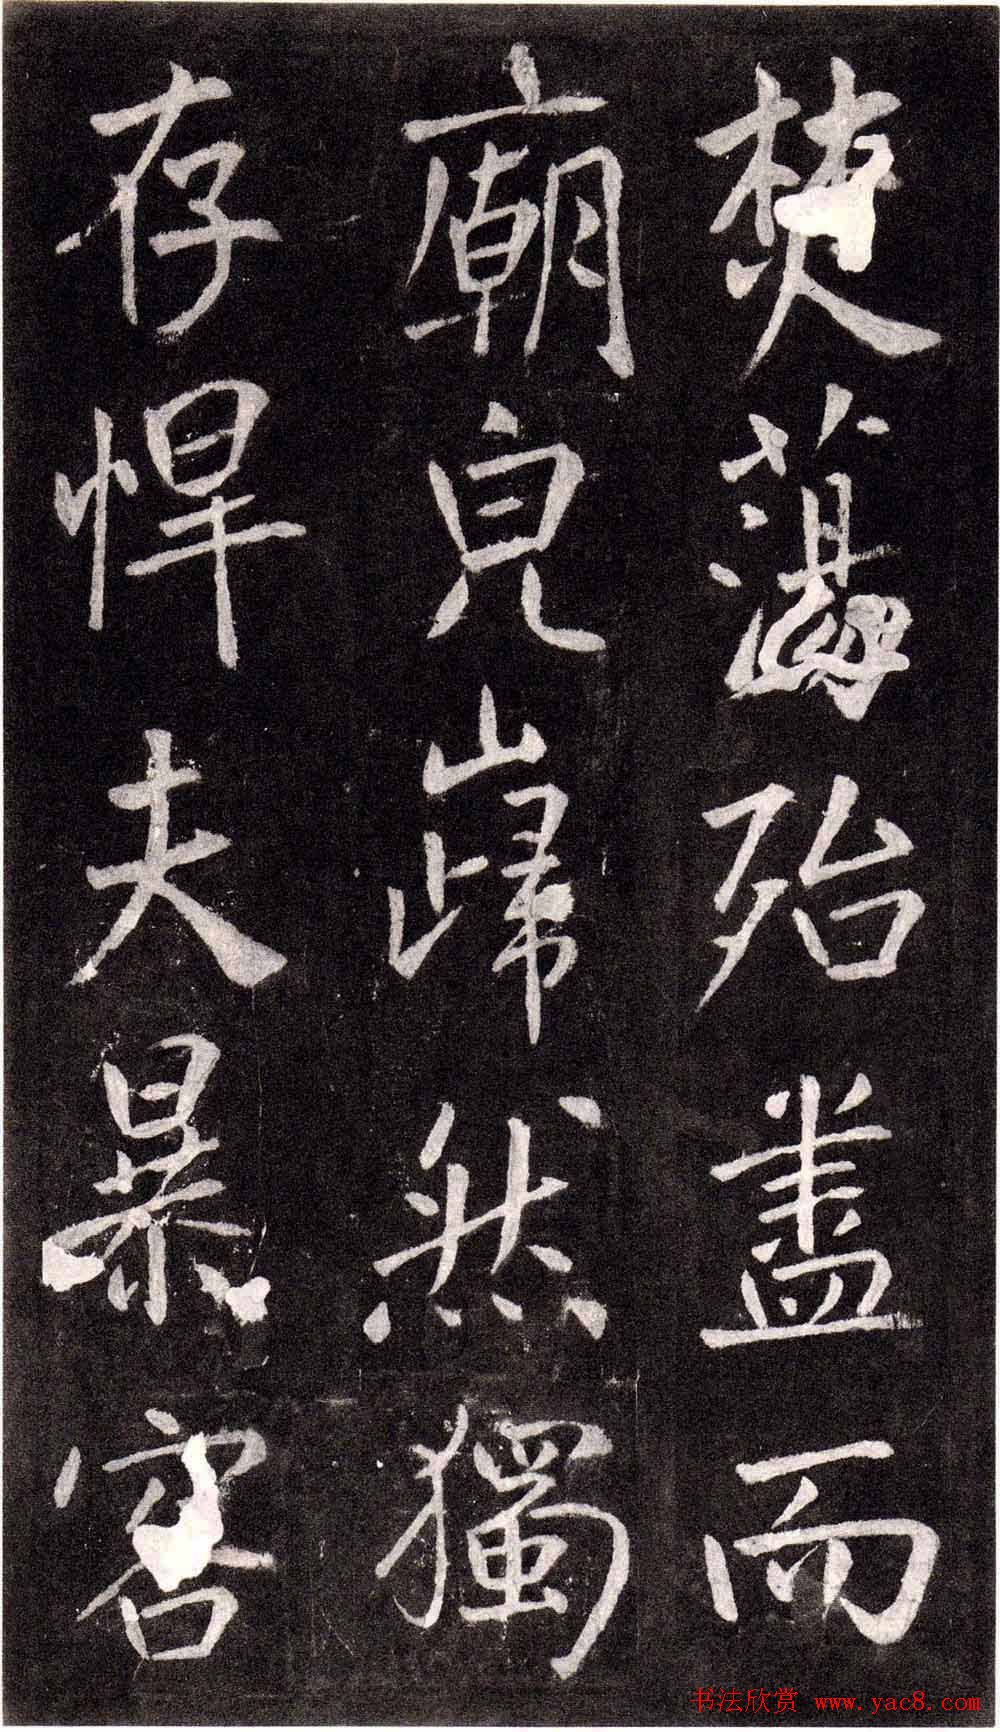 焚蕩殆盡而
廟皃巋然獨
存悍夫暴客
书法欣赏 www.yac8.com